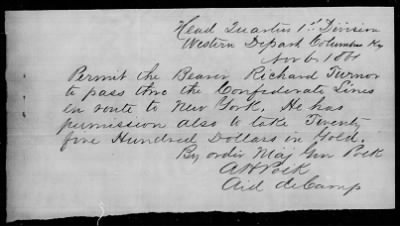 Head Quarters 1st Division
Western Depart Columbus Ky
Nov 6 1861
Permit the Bearer Richard Turnor
to pass thro the Confederate Lines
en route to New York. He has
permission also to take Twenty
five Hundred Dollars in Gold.
By order Maj Gen Polk
A H Polk
Aid de Camp